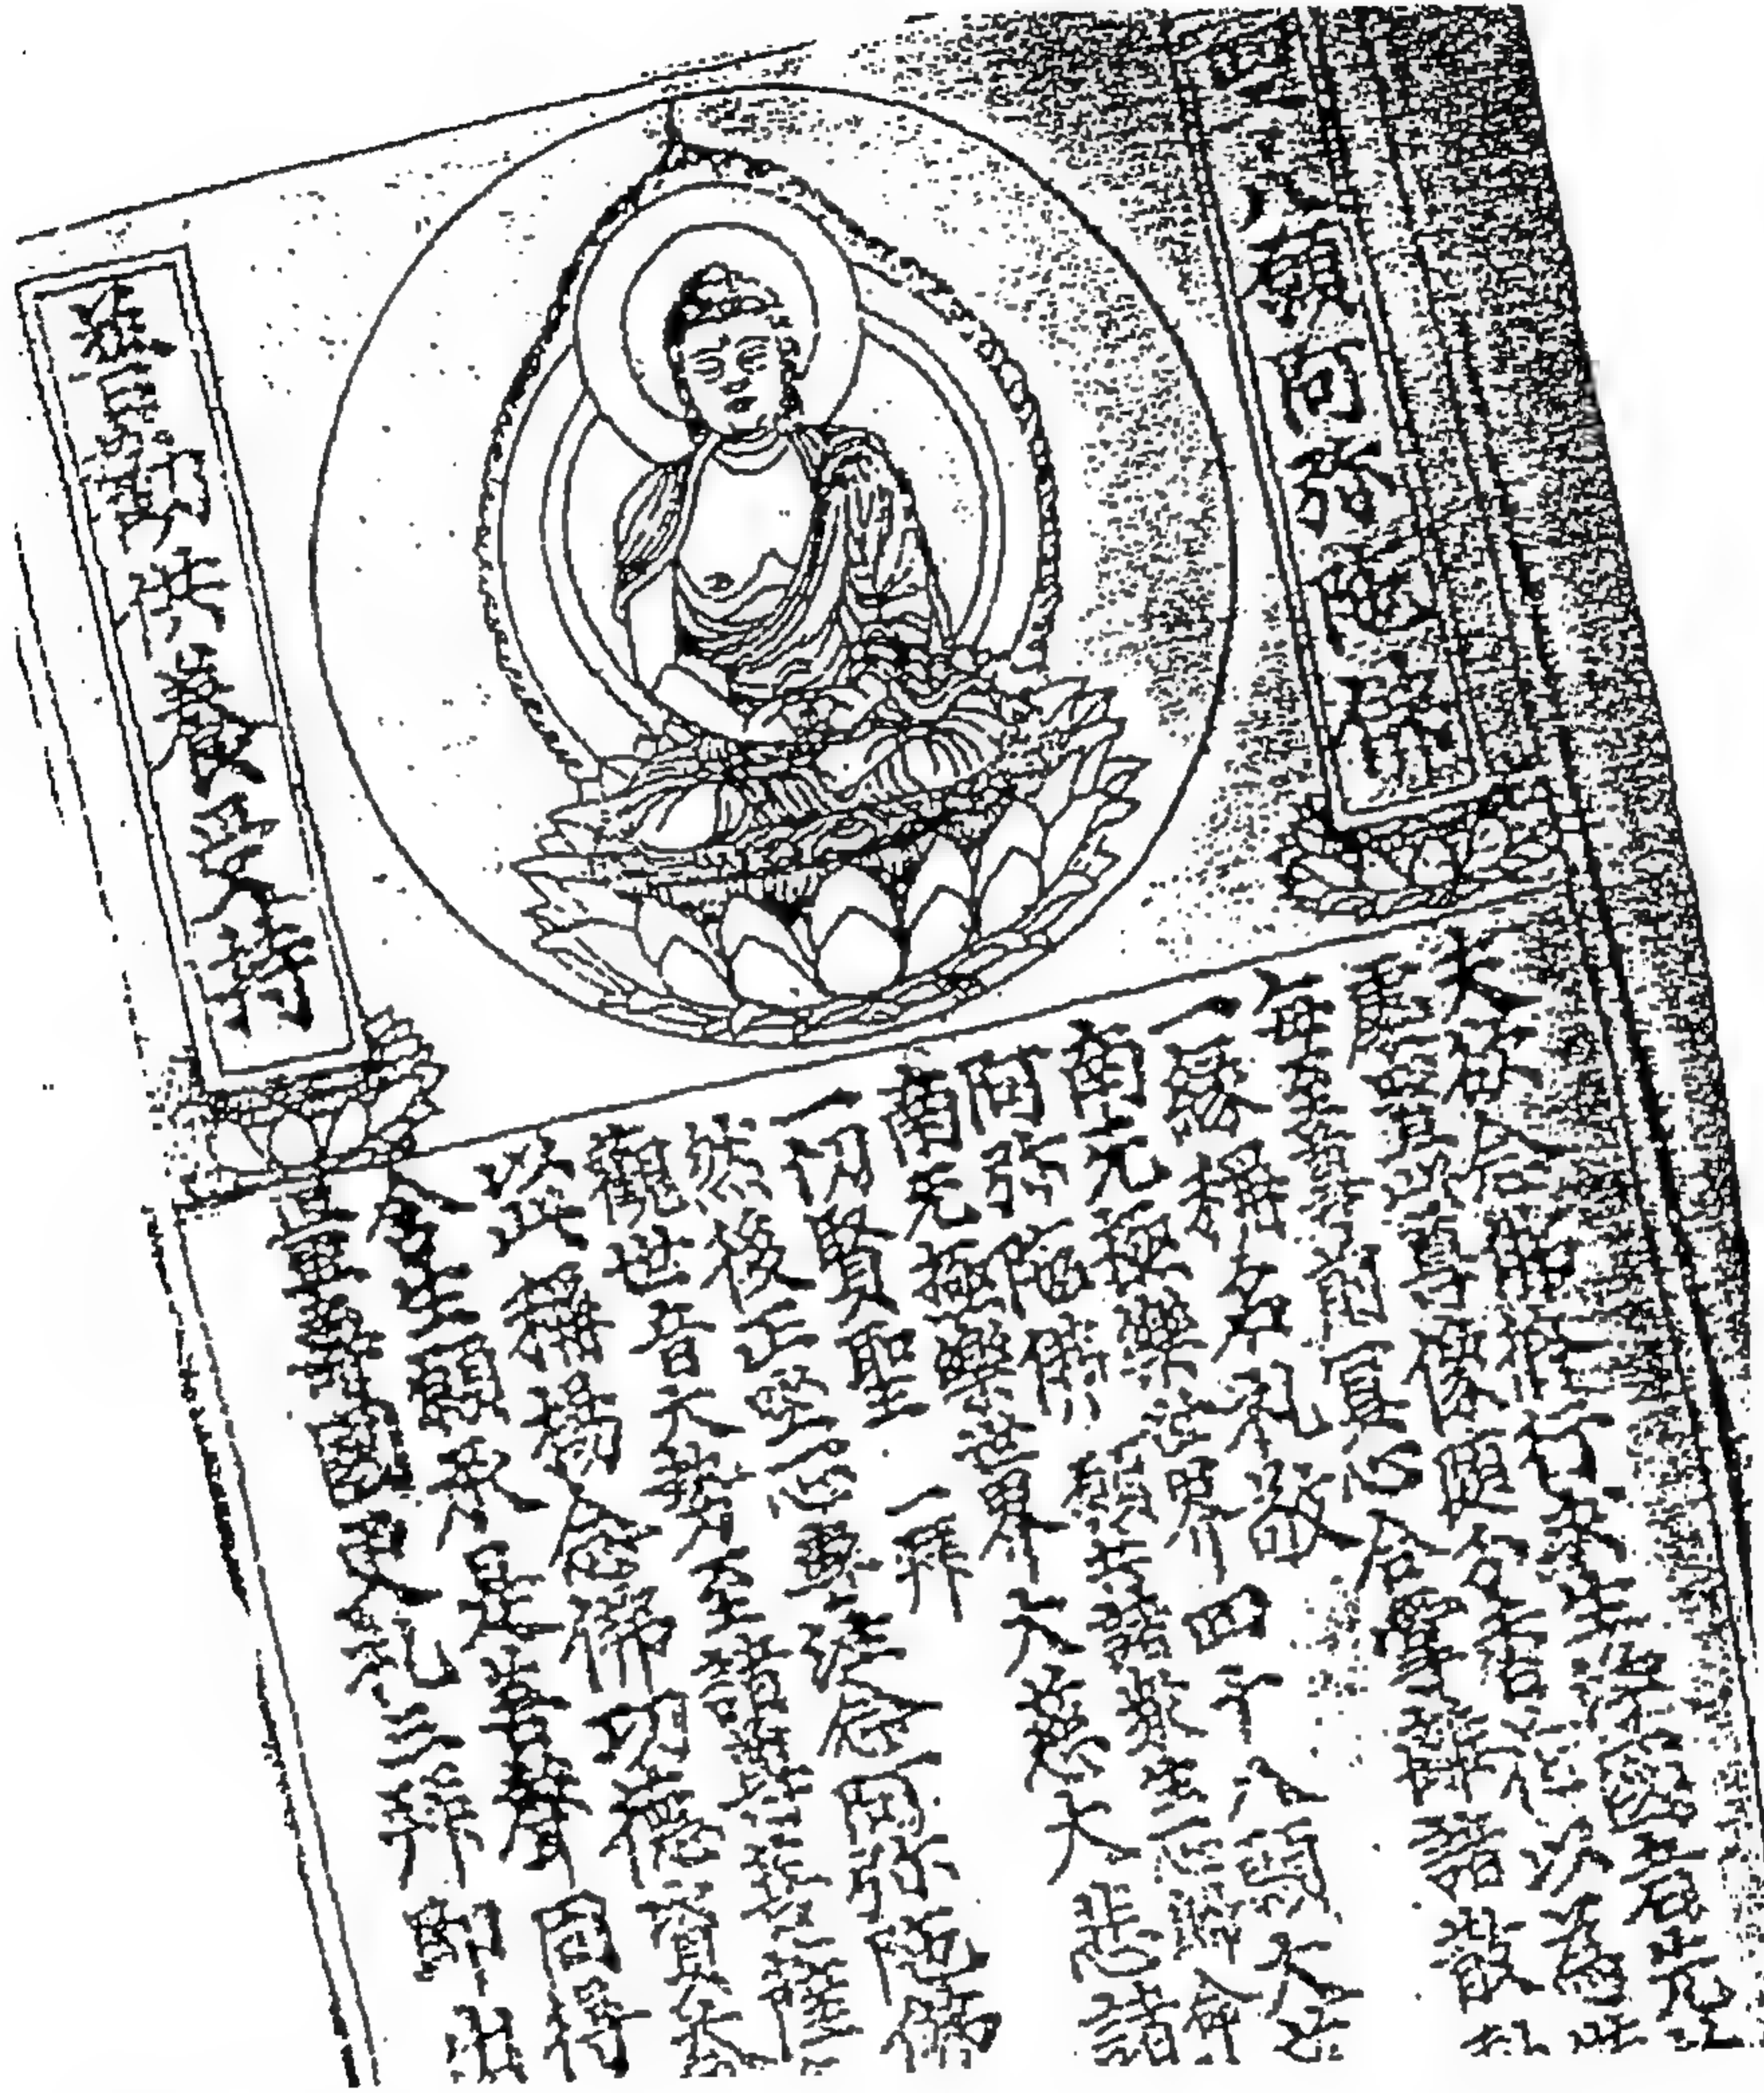 四十八願阿弥陀佛
普勸供養受持
夫欲念佛修行求生淨國者先
處置此尊像隨分香花以為
每至尊前冥心合掌離諸散
一緣稱名礼敬
南无極樂世界四十八願大慈
阿弥陀佛 願共諸衆生一心歸命
南无極樂世界大慈大悲諸
一切賢聖 一拜
然後正坐一心專注念阿弥陀佛
觀世音大勢至諸尊菩薩
以此稱揚念佛功德資
含生願承是善聲同得
量壽國更礼三拜即出